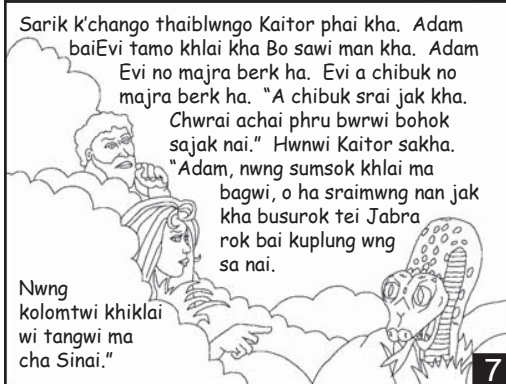 Sarik k'chango thaiblwngo Kaitor phai kha.  Adam
baiEvi tamo khlai kha Bo sawi man kha.  Adam
Evi no majra berk ha.  Evi a chibuk no
majra berk ha.  “A chibuk srai jak kha.
Chwrai achai phru bwrwi bohok
sajak nai.”  Hwnwi Kaitor sakha.
“Adam, nwng sumsok khlai ma
bagwi, o ha sraimwng nan jak
kha busurok tei Jabra
rok bai kuplung wng
sa nai.
Nwng
kolomtwi khiklai
wi tangwi ma
cha Sinai.”
7